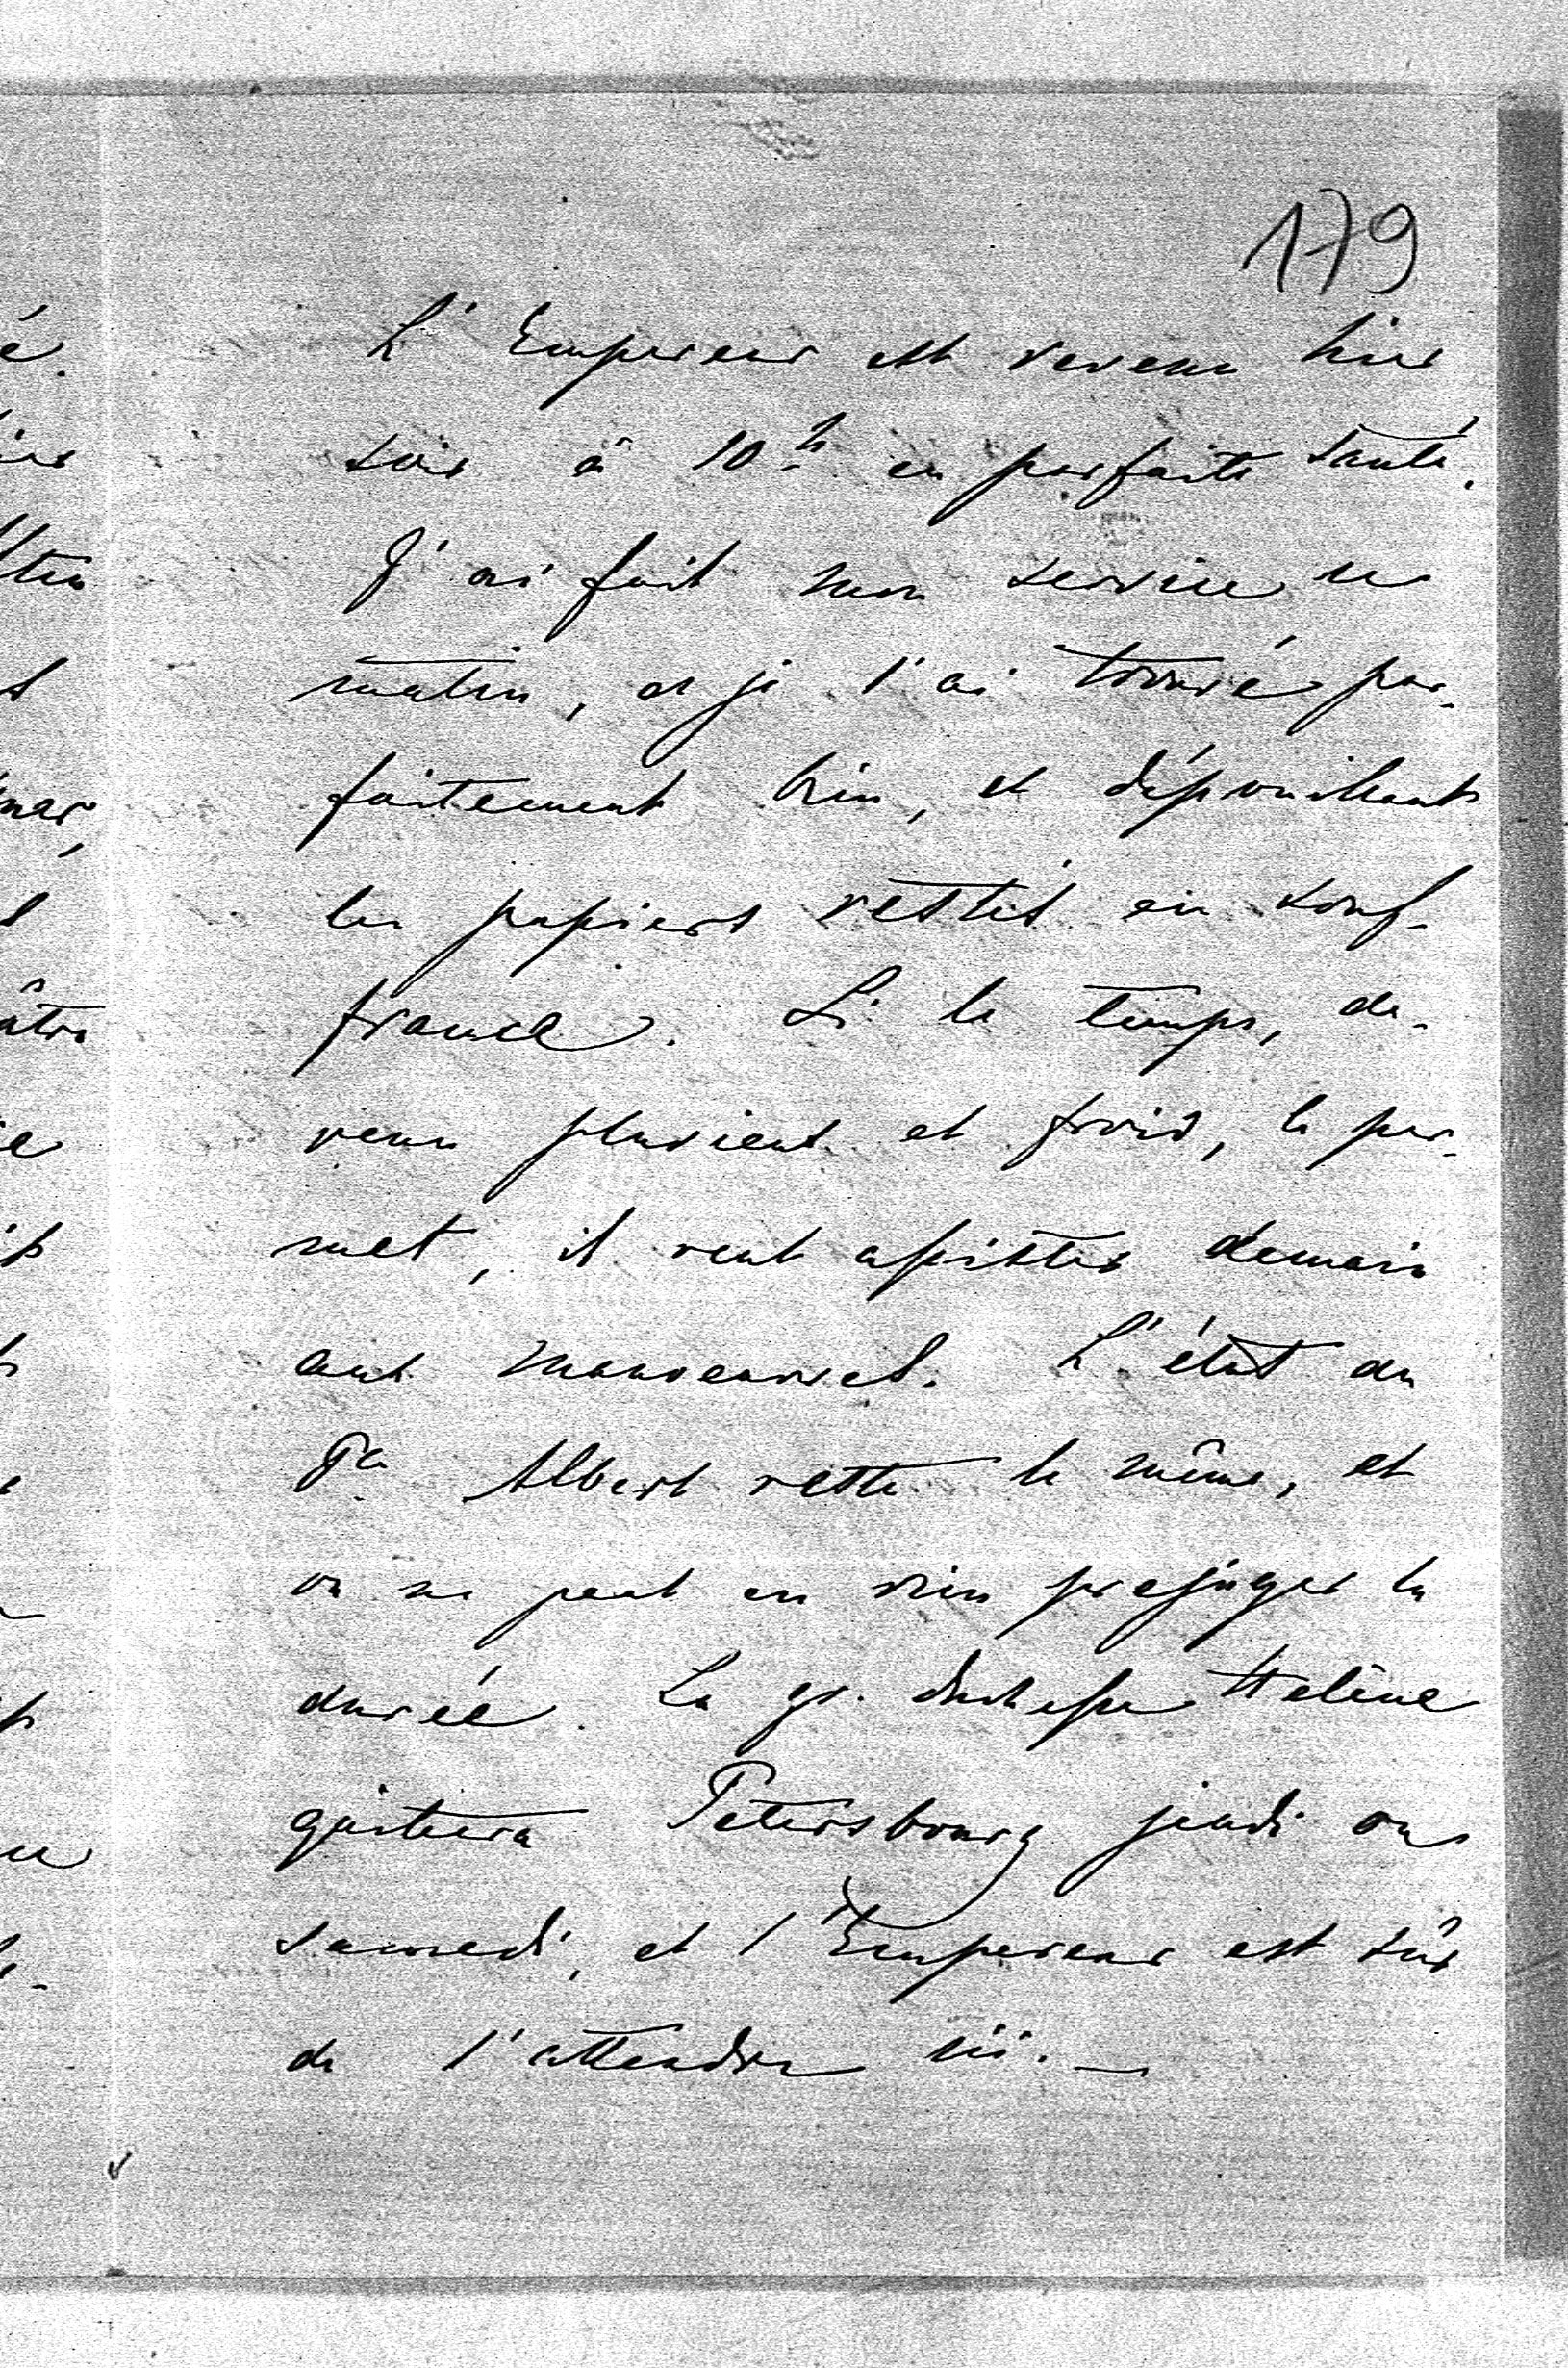 179
L'Empereur est revenu hier
soir à 10 h. en parfaite santé.
J'ai fait mon service ce
matin, et je l'ai trouvé par-
faitement bien, et dépouillant
les papiers restés en souf-
france. Si le temps, de-
venu pluvieux et froid, le per-
met, il veut assister demain
aux manoeuvres. L'état du
Pce Albert reste le même, et
on ne peut en rien prejuger la
durée. La gr. duchesse Helène
quittera Petersbourg jeudi ou
samedi, et l'Empereur est sûr
de l'attendre ici. —